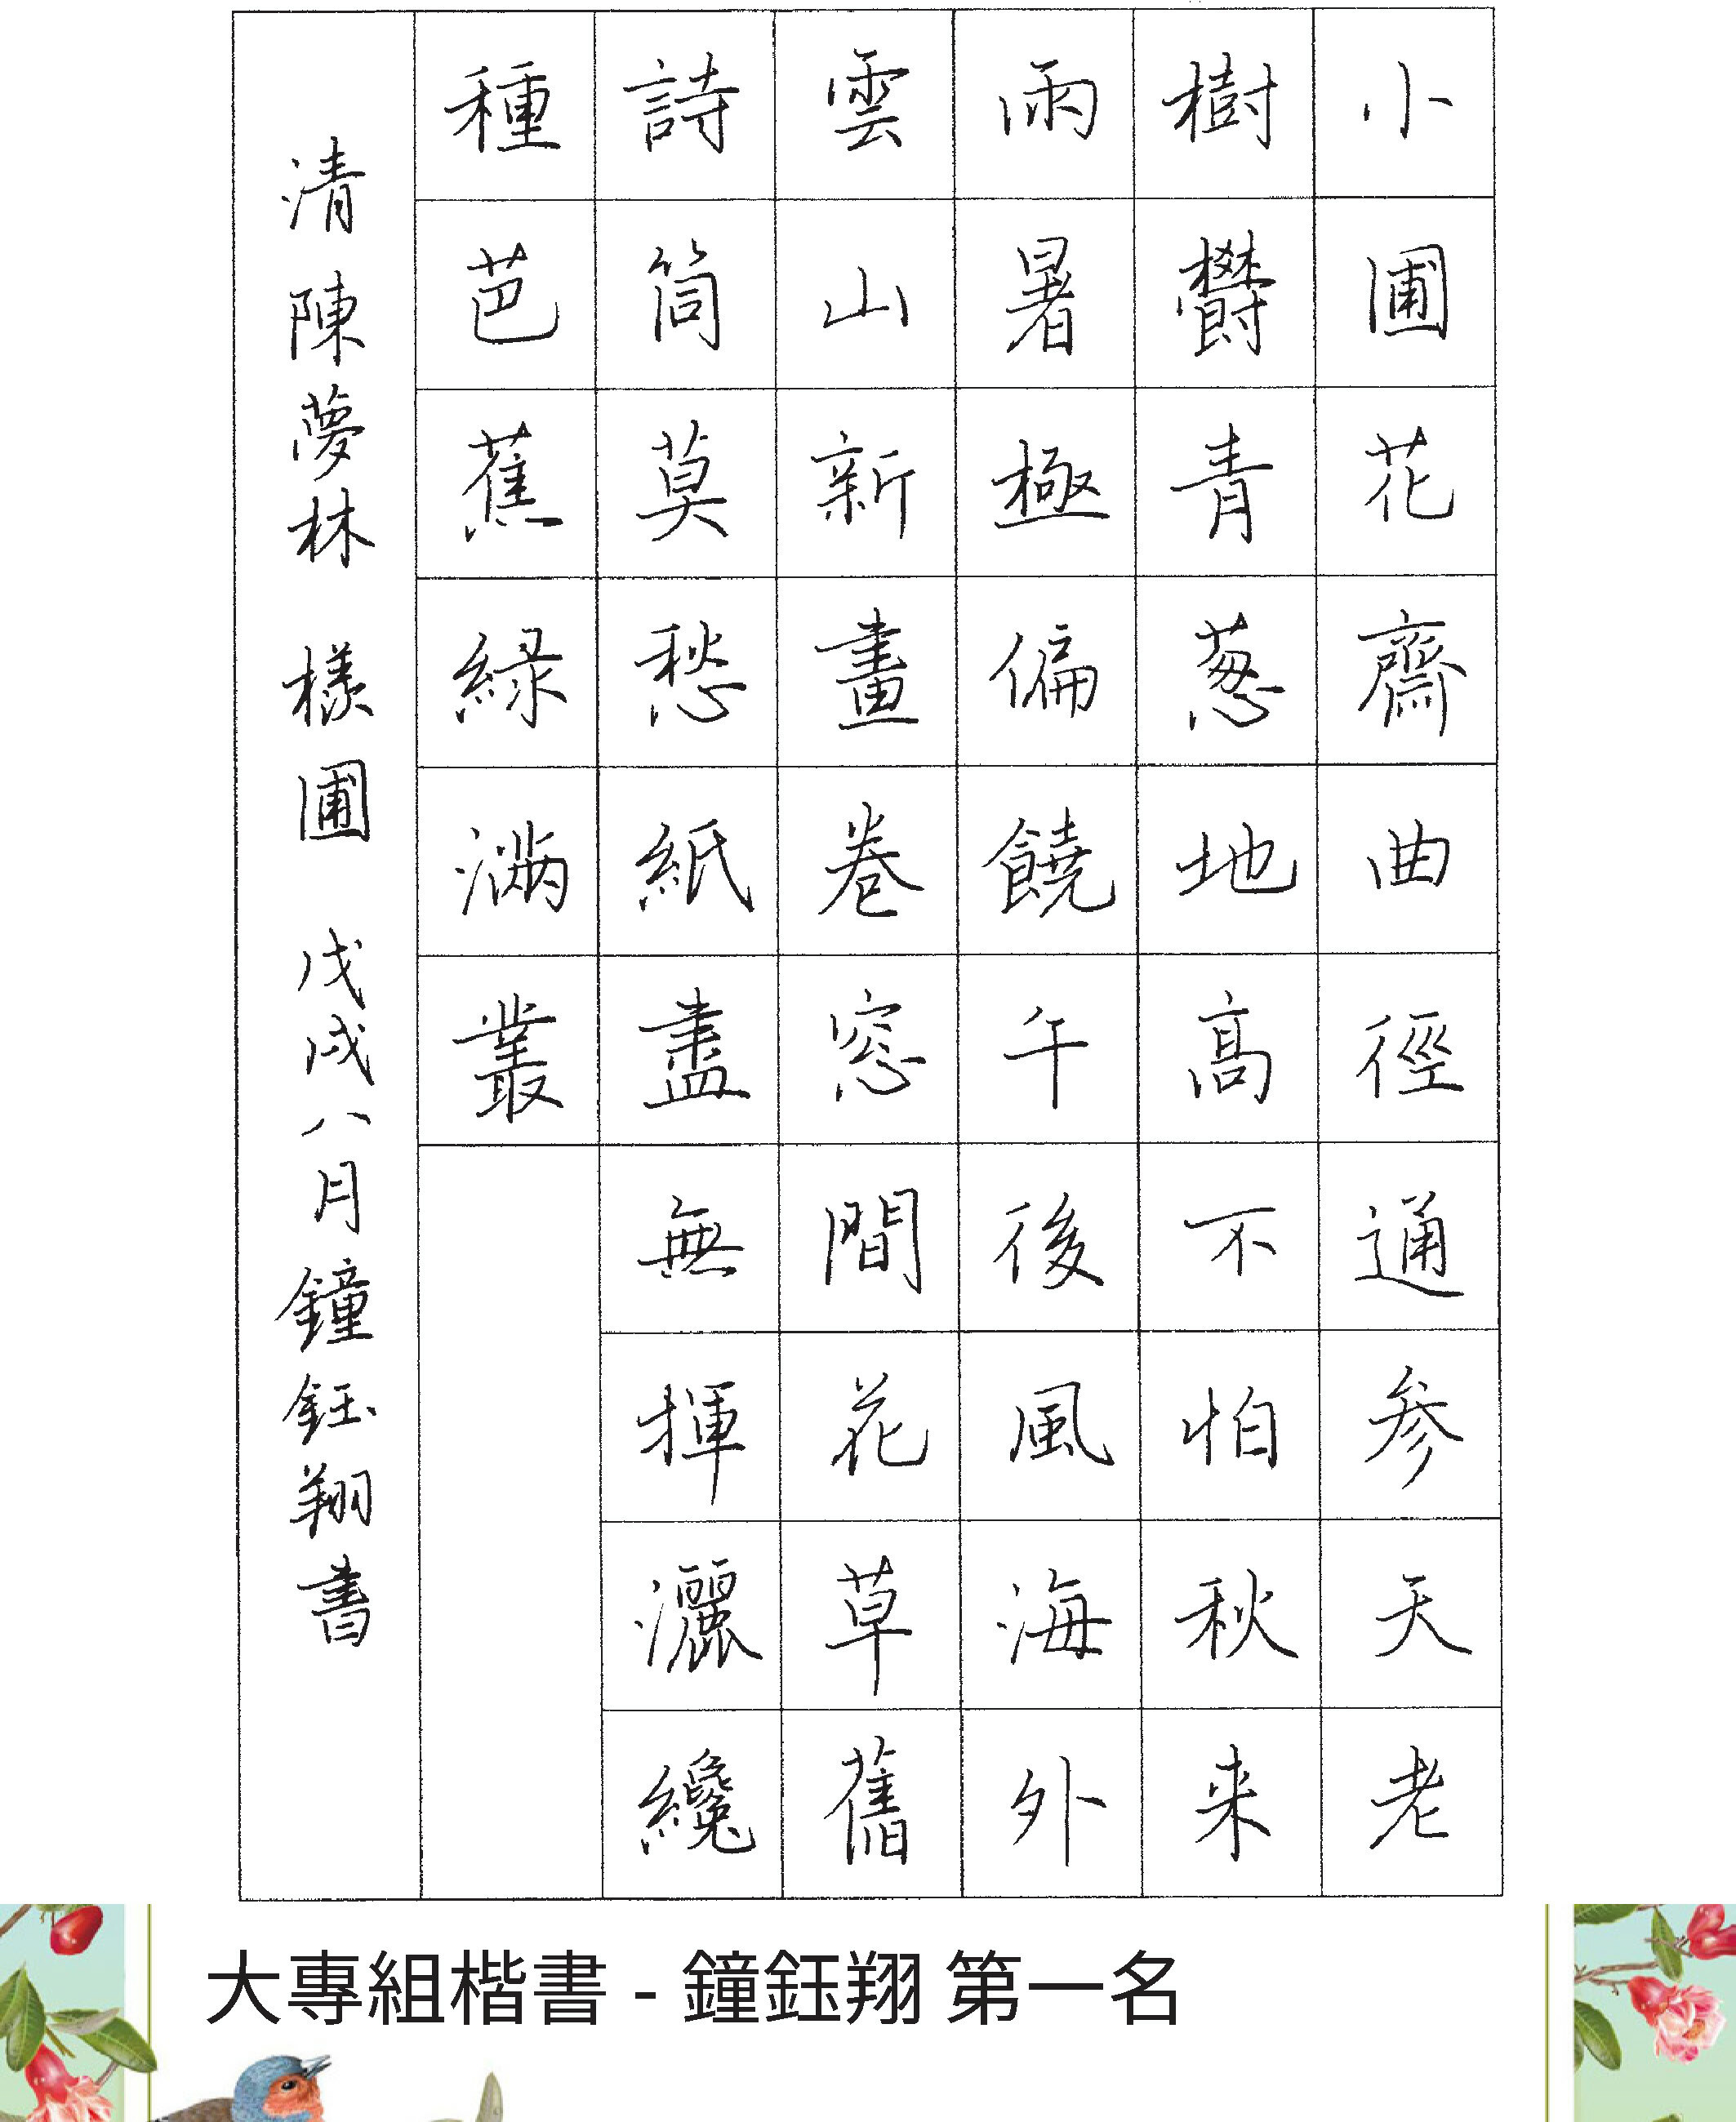 小圃花齋曲徑通參天老
樹欝青葱地高不怕秋来
雨暑極偏饒午後風海外
雲山新畫卷窓間花草舊
詩筒莫愁紙盡無揮灑纔
種芭蕉緑滿叢
清陳夢林 檨圃 戊戌八月鐘鈺翔書
大專組楷書 - 鐘鈺翔 第一名